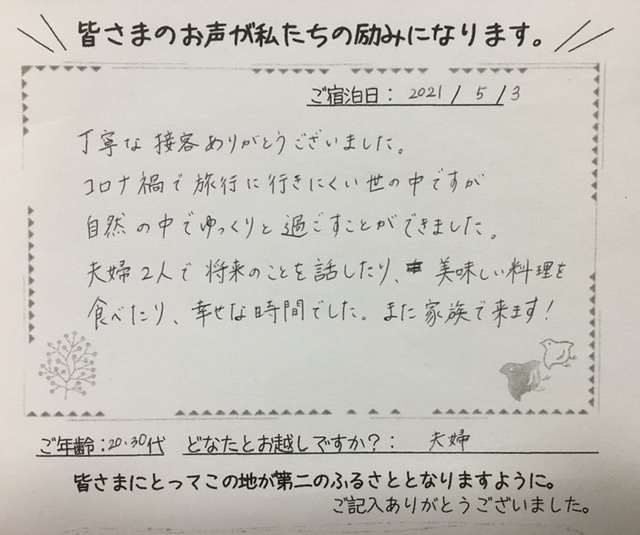 皆さまのお声が私たちの励みになります。
ご宿泊日：2021 / 5 / 3
丁寧な接客ありがとうございました。
コロナ禍で旅行に行きにくい世の中ですが
自然の中でゆっくりと過ごすことができました。
夫婦2人で将来のことを話したり、美味しい料理を
食べたり、幸せな時間でした。また家族で来ます!
ご年齢：20.30代 どなたとお越しですか？： 夫婦
皆さまにとってこの地が第二のふるさととなりますように。
ご記入ありがとうございました。